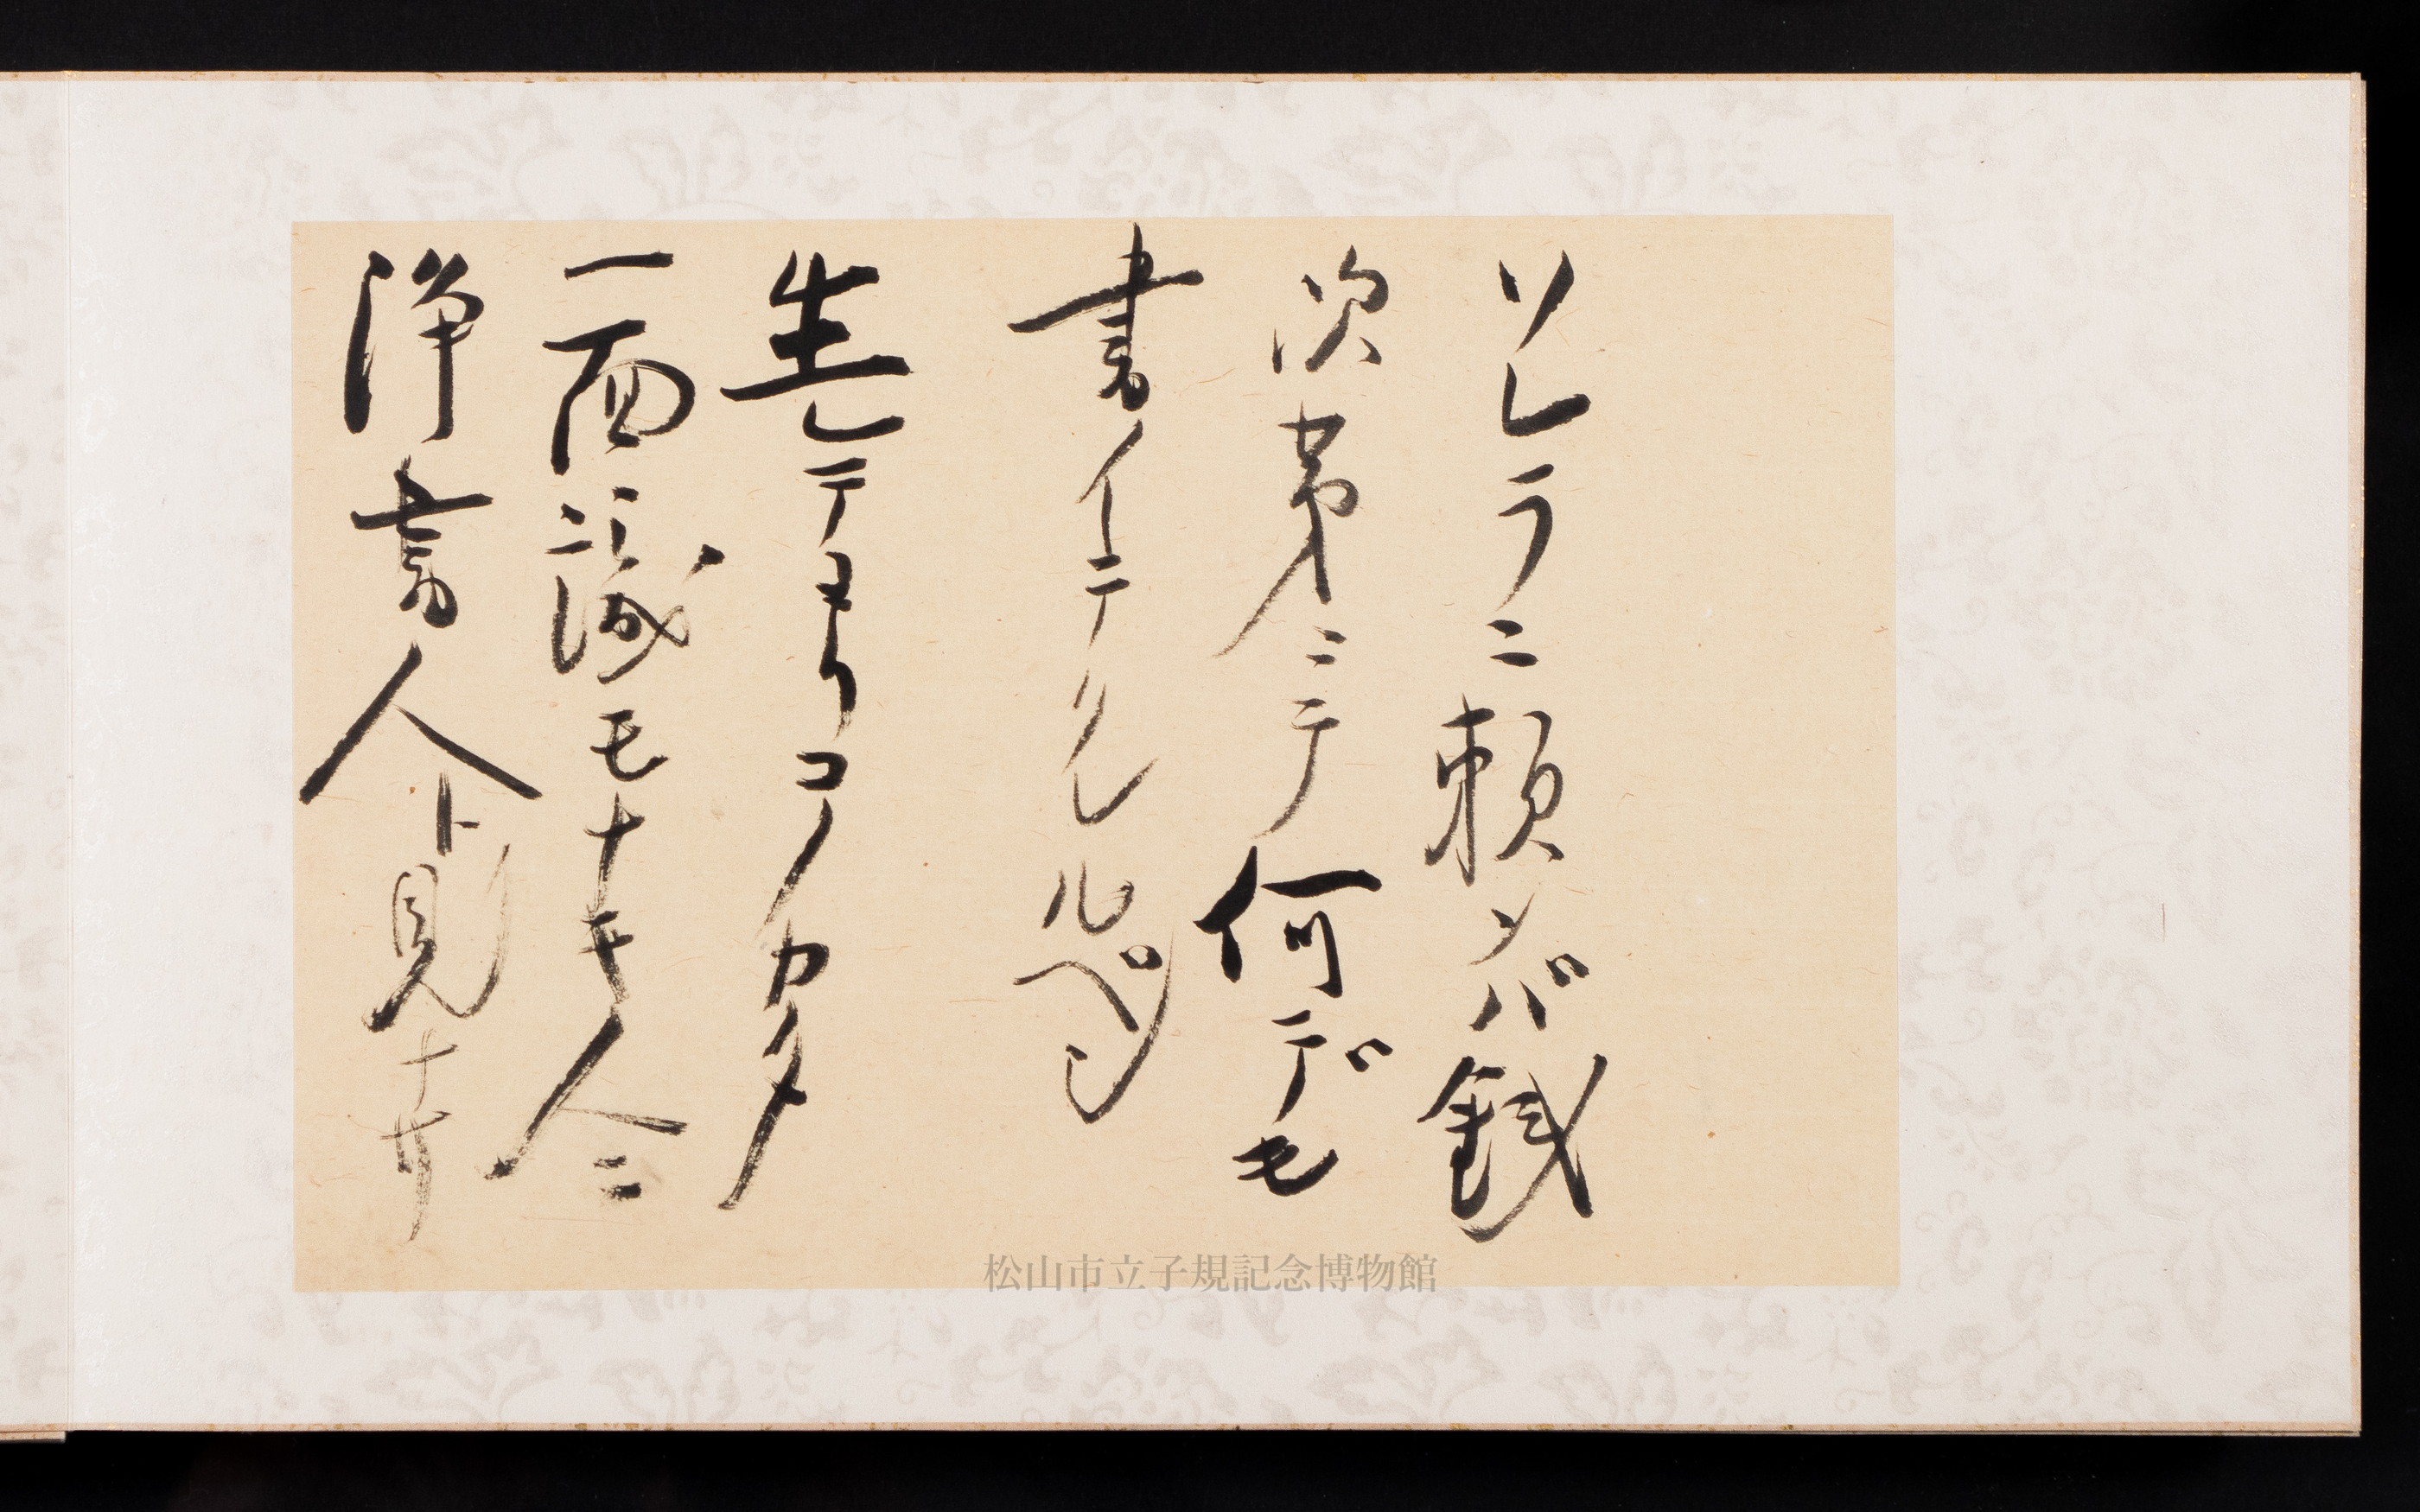 ソレラニ頼ンバ銭
次第ニテ何デモ
書イテクルルベシ
生レテヨリコノカタ
一面識モナキ人ニ
浄書人ト見ナサ
松山市立子規記念博物館